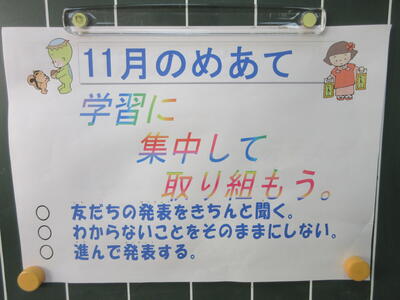 11月のめあて
学習に
集中して
取り組もう。
○ 友だちの発表をきちんと聞く。
○ わからないことをそのままにしない。
○ 進んで発表する。